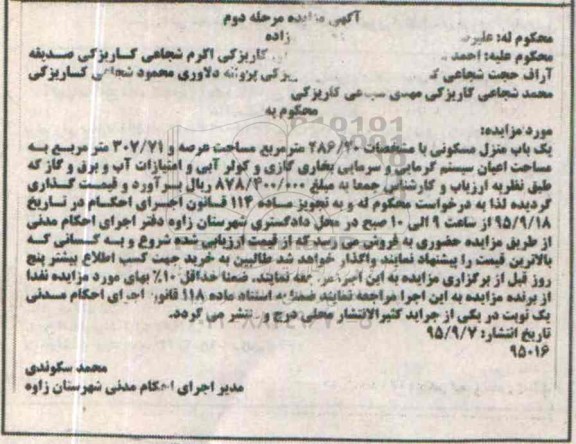 آگهی مزایده مرحله دوم
محکوم له: علیرضا زاده
محکوم علیه: احمد کاریزکی اکرم شجاعی کاریزکی صدیقه
آراف حجت شجاعی پروانه دلاوری محمود شجاعی کاریزکی
محمد شجاعی کاریزکی مهدی شجاعی کاریزکی
محکوم به
مورد مزایده:
یک باب منزل مسکونی با مشخصات ۲۸۶/۲۰ مترمربع مساحت عرصه و ۳۰۷/۷۱ متر مربع به
مساحت اعیان سیستم گرمایی و سرمایی بخاری گازی و کولر آبی و امتیازات آب و برق و گاز که
طبق نظریه ارزیاب و کارشناس جمعا به مبلغ ۸۷۸/۴۰۰/۰۰۰ ریال برآورد و قیمت گذاری
گردیده لذا به درخواست محکوم له و به تجویز ماده ۱۱۴ قانون اجرای احکام در تاریخ
۹۵/۹/۱۸ از ساعت ۹ الی ۱۰ صبح در محل دادگستری شهرستان زاوه دفتر اجرای احکام مدنی
از طریق مزایده حضوری به فروش می رسد که از قیمت ارزیابی شده شروع و به کسانی که
بالاترین قیمت را پیشنهاد نمایند واگذار خواهد شد طالبین به خرید جهت کسب اطلاع بیشتر پنج
روز قبل از برگزاری مزایده به این اجرا مراجعه نمایند. ضمنا حداقل ۱۰٪ بهای مورد مزایده نقدا
از برنده مزایده به این اجرا مراجعه نمایند ضمنا به استناد ماده ۱۱۸ قانون اجرای احکام مدنی
یک نوبت در یکی از جراید کثیرالانتشار محلی درج و منتشر می گردد.
تاریخ انتشار: ۹۵/۹/۷
۹۵۰۱۶
محمد سکوندی
مدیر اجرای احکام مدنی شهرستان زاوه